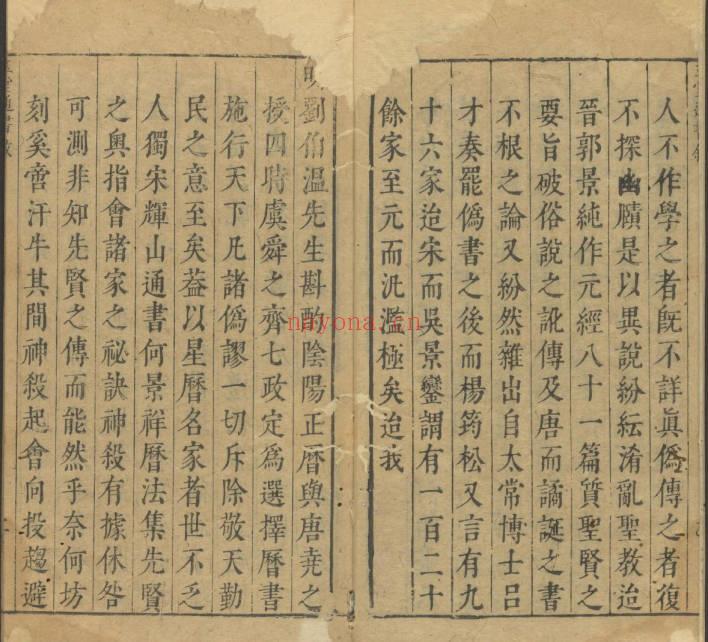 人不作學之者既不詳真僞傳之者復
不探幽賾是以異說紛紜淆亂聖教迨
晉郭景純作元經八十一篇質聖賢之
要旨破俗說之訛傳及唐而譎誕之書
不根之論又紛然雜出自太常博士呂
才奏罷僞書之後而楊筠松又言有九
十六家迨宋而吳景鸞謂有一百二十
餘家至元而汎濫極矣迨我
明劉伯溫先生斟酌陰陽正曆與唐堯之
授四時虞舜之齊七政定爲選擇曆書
施行天下凡諸僞謬一切斥除敬天勤
民之意至矣葢以星曆名家者世不乏
人獨宋輝山通書何景祥曆法集先賢
之奥指會諸家之秘訣神殺有據休咎
可測非知先賢之傳而能然乎奈何坊
刻奚啻汗牛其間神殺起會向投趨避
nayona.cn